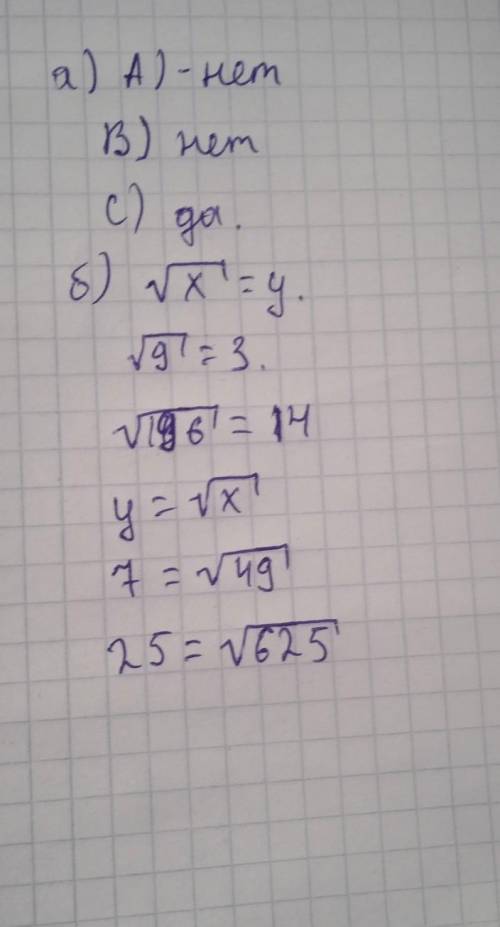 а) А) - нет
В) нет
С) да.
б) √x = y.
√9 = 3.
√196 = 14
y = √x
7 = √49
25 = √625